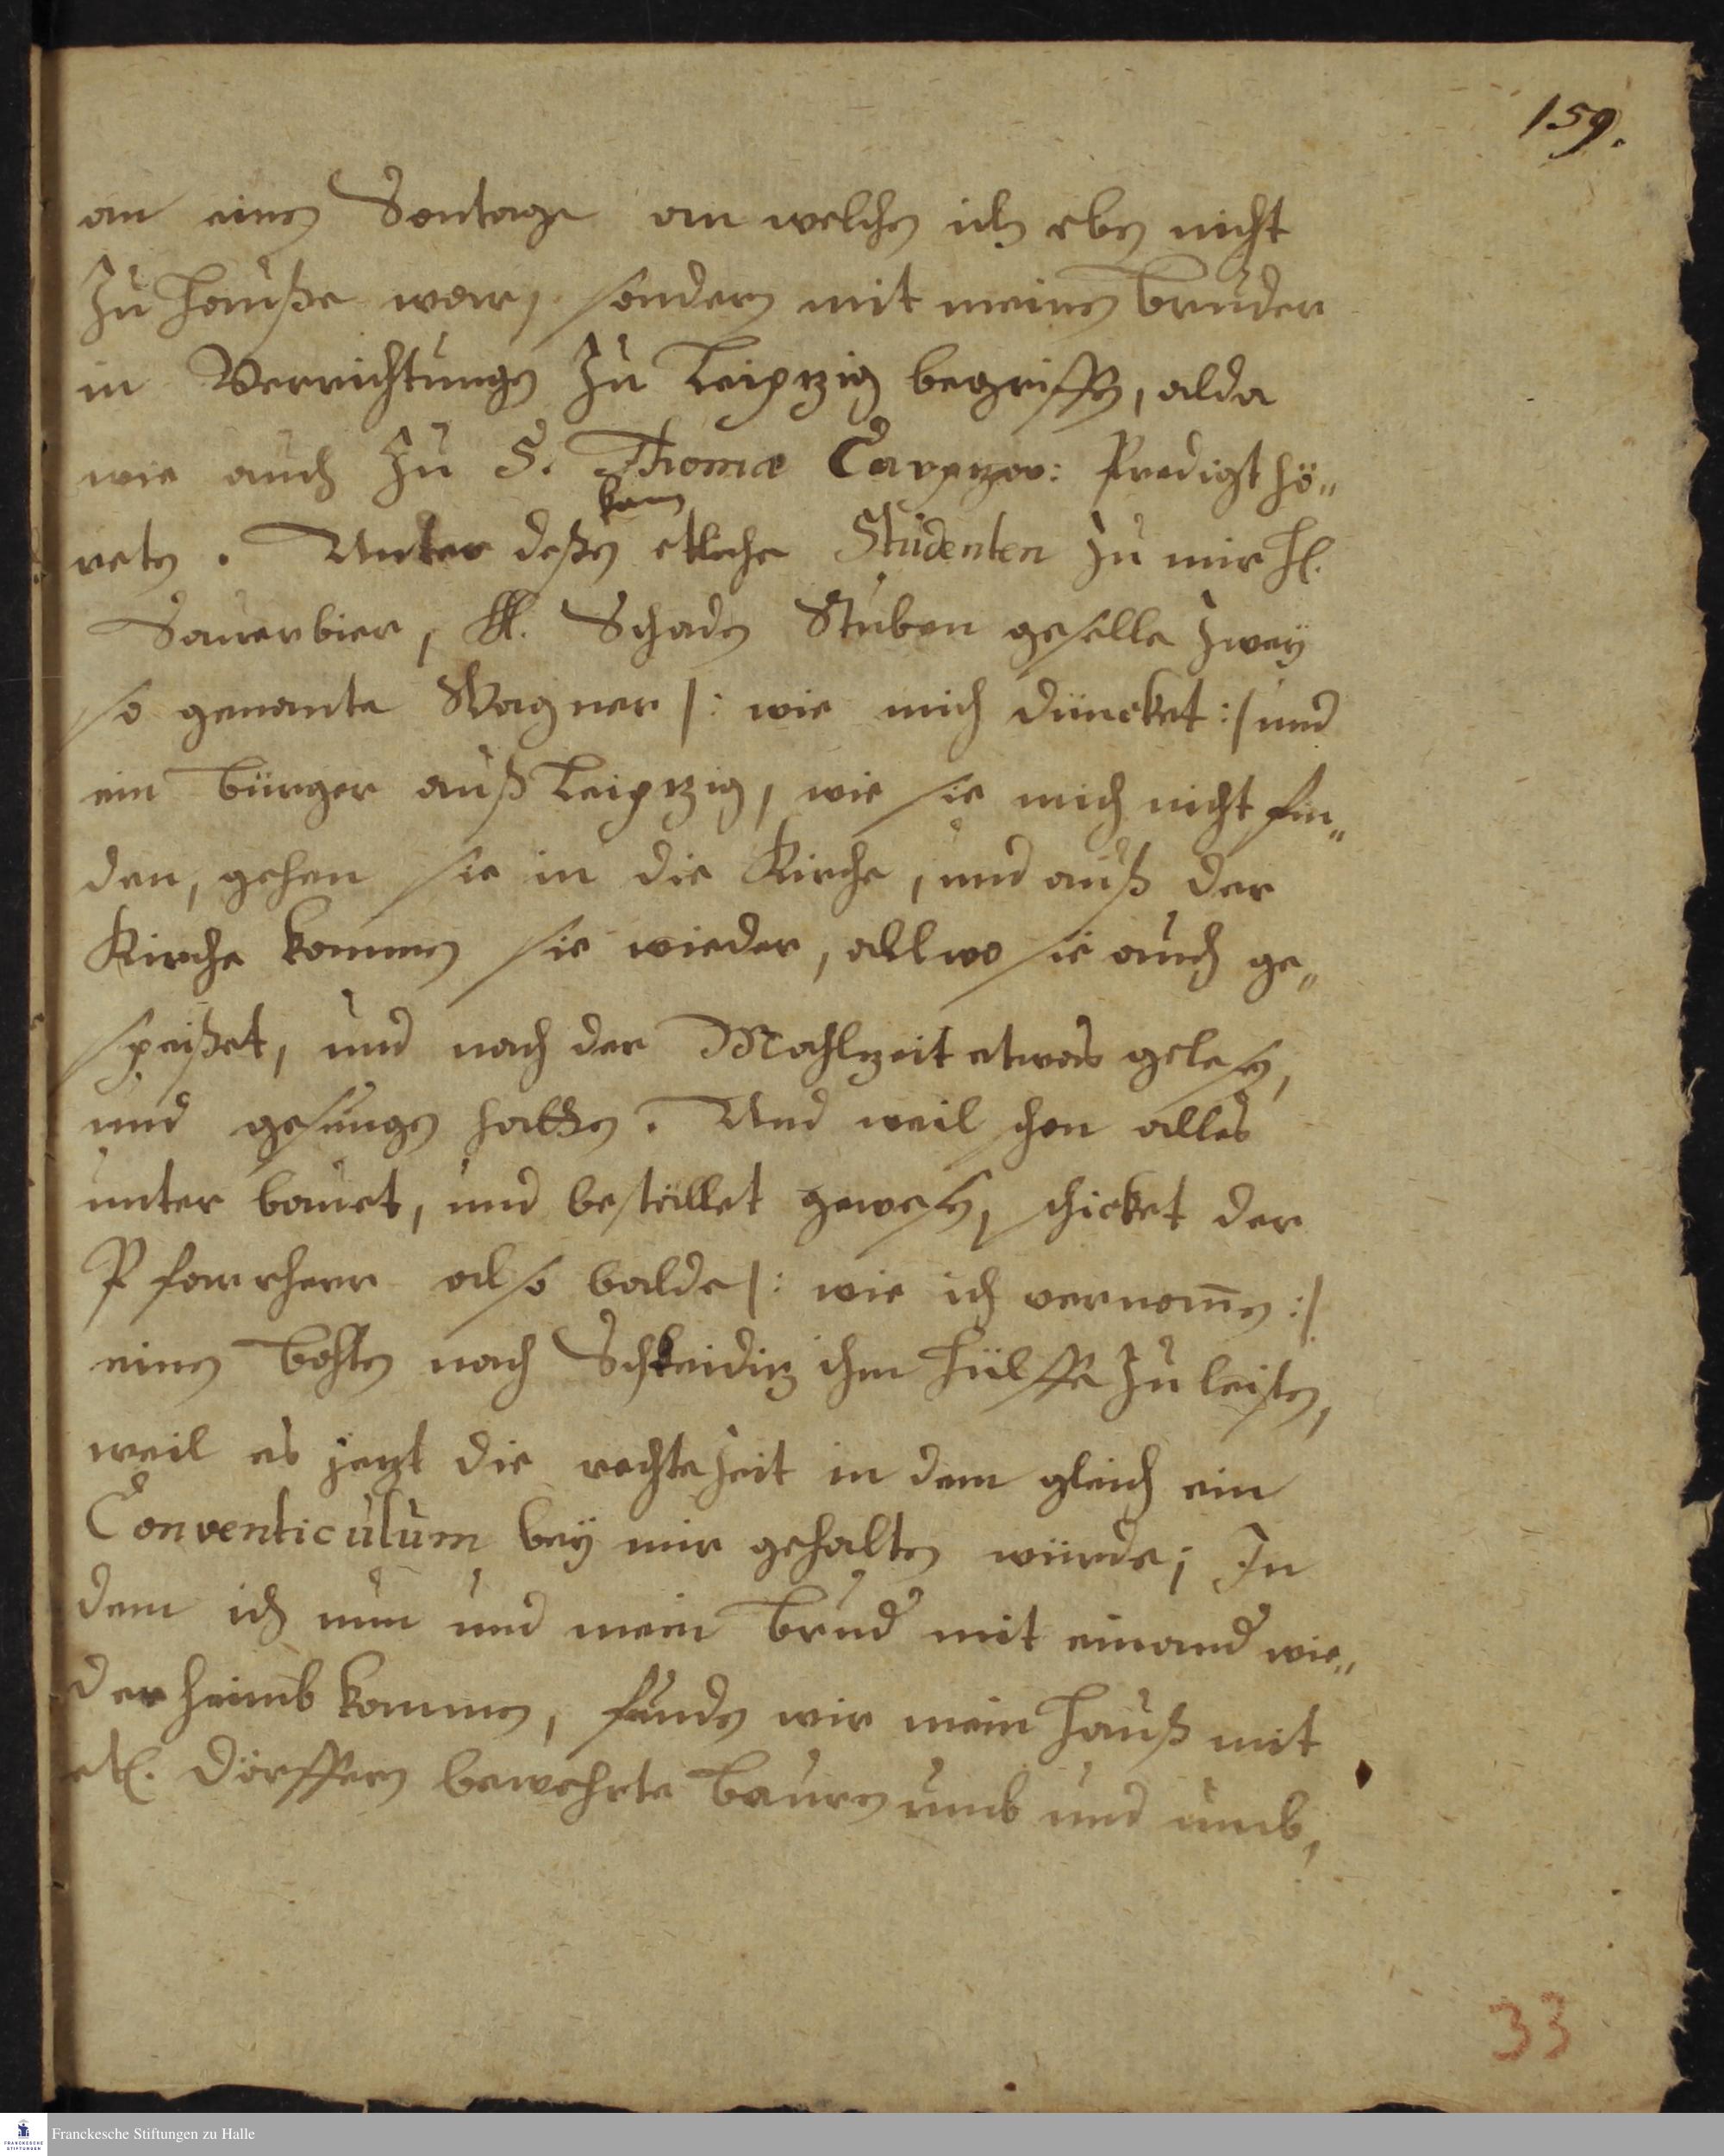 159.
an einen Sontage an welchen ich eben nicht
Zu Hauße war, sondern mit meinen bruder
in Verrichtungen Zu Leipzig begriffen, alda
wie auch Zu S. Thomæ Carpzov: Predigt hö„
kam
reten. Unter deßen etliche Studenten Zu mir H.
Sauerbier, H. Schaden Stuben geselle Zwey
so genante Wagner /: wie mich düncket :/ und
ein bürger auß Leipzig, wie sie mich nicht fin„
den, gehen sie in die Kirche, und auß der
Kirche kommen sie wieder, allwo sie auch ge„
speißet, und nach der Mahlzeit etwas gelesen,
und gesungen hatten. Und weil schon alles
unter bauet, und bestellet gewesen, schicket der
Pfarrherr also balde /: wie ich vernom̄en :/
einen bohten nach Schkeidiz ihm Hülffe Zu leisten,
weil es jezt die rechte Zeit in dem gleich ein
Conventiculum bey mir gehalten würde; In
dem ich nun und mein brud mit einand wie„
der heimb kommen, funden wir mein Hauß mit
etl. dörffern bewehrte bauren umb und umb,
33
Franckesche Stiftungen zu Halle
FRANCKESCHE
STIFTUNGEN